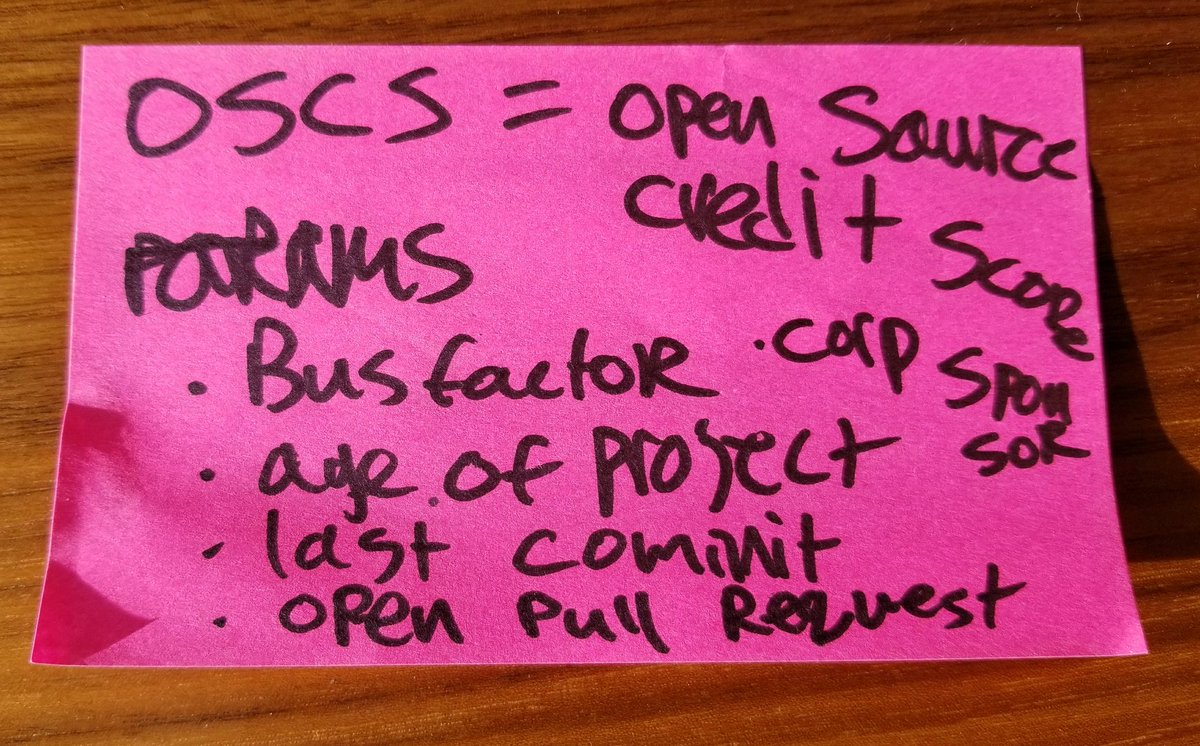 OSCS = Open Source
credit Score
PARAMS
• Bus factor
• corp Sponsor
• age of project
• last commit
• open Pull Request